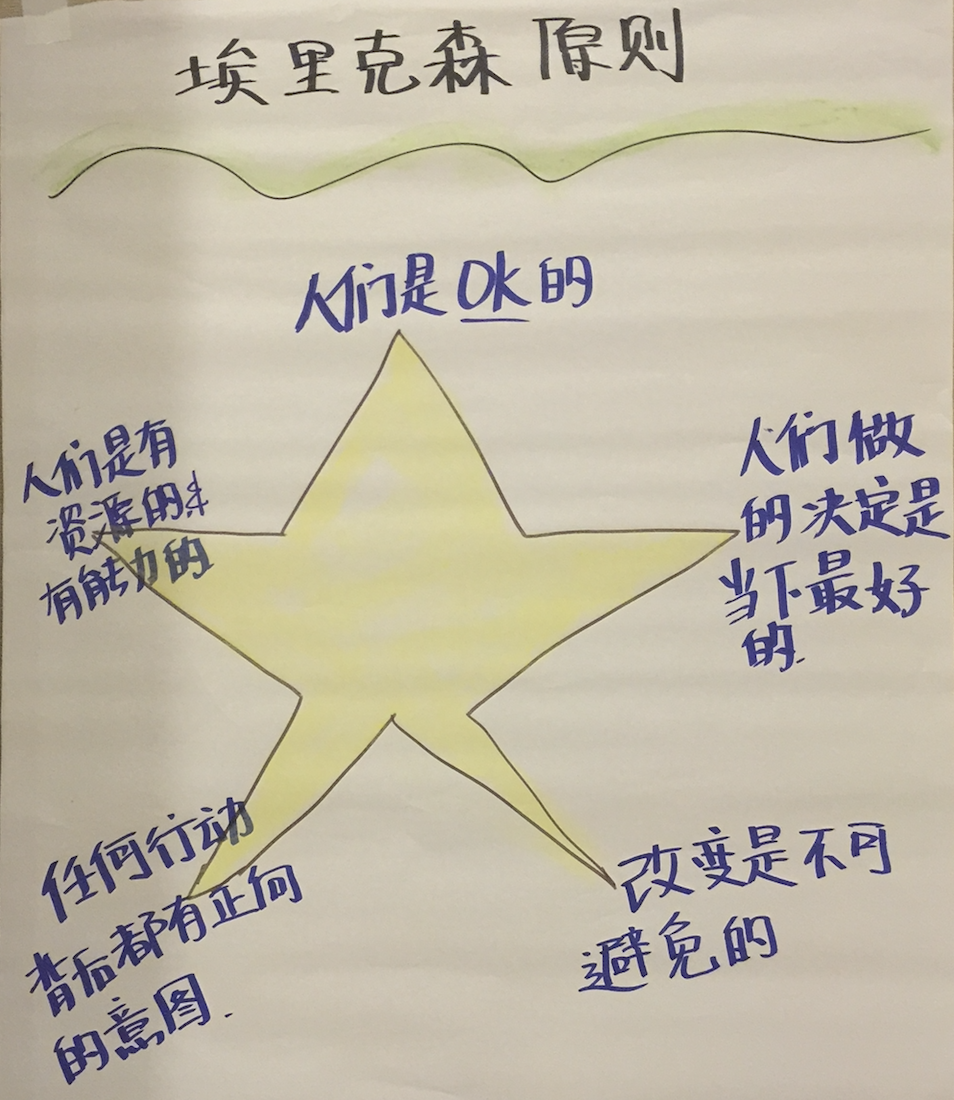 埃里克森原则
人们是OK的
人们是有
资源的&
有能力的
人们做
的决定是
当下最好
的.
任何行动
背后都有正向
的意图.
改变是不可
避免的